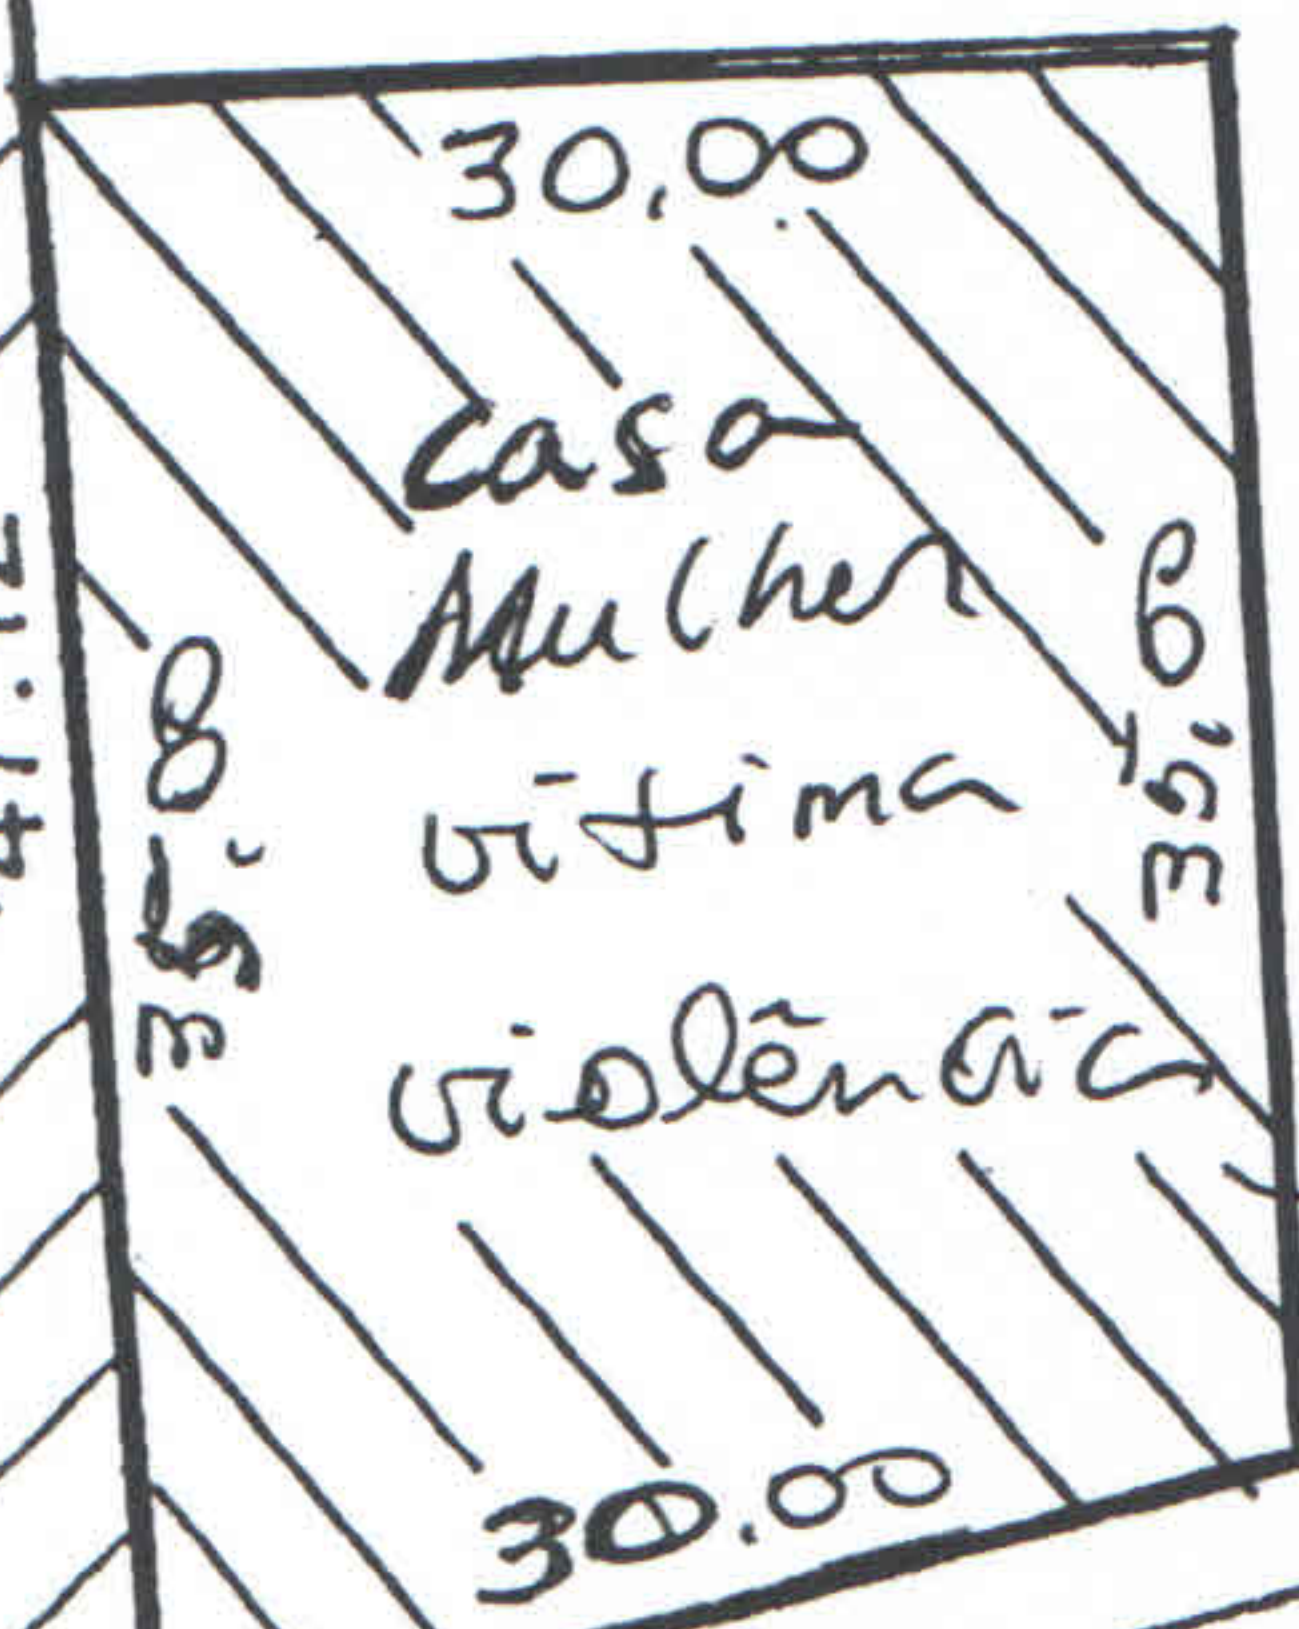 30,00
casa
Mulher
vitima
violência
30.00